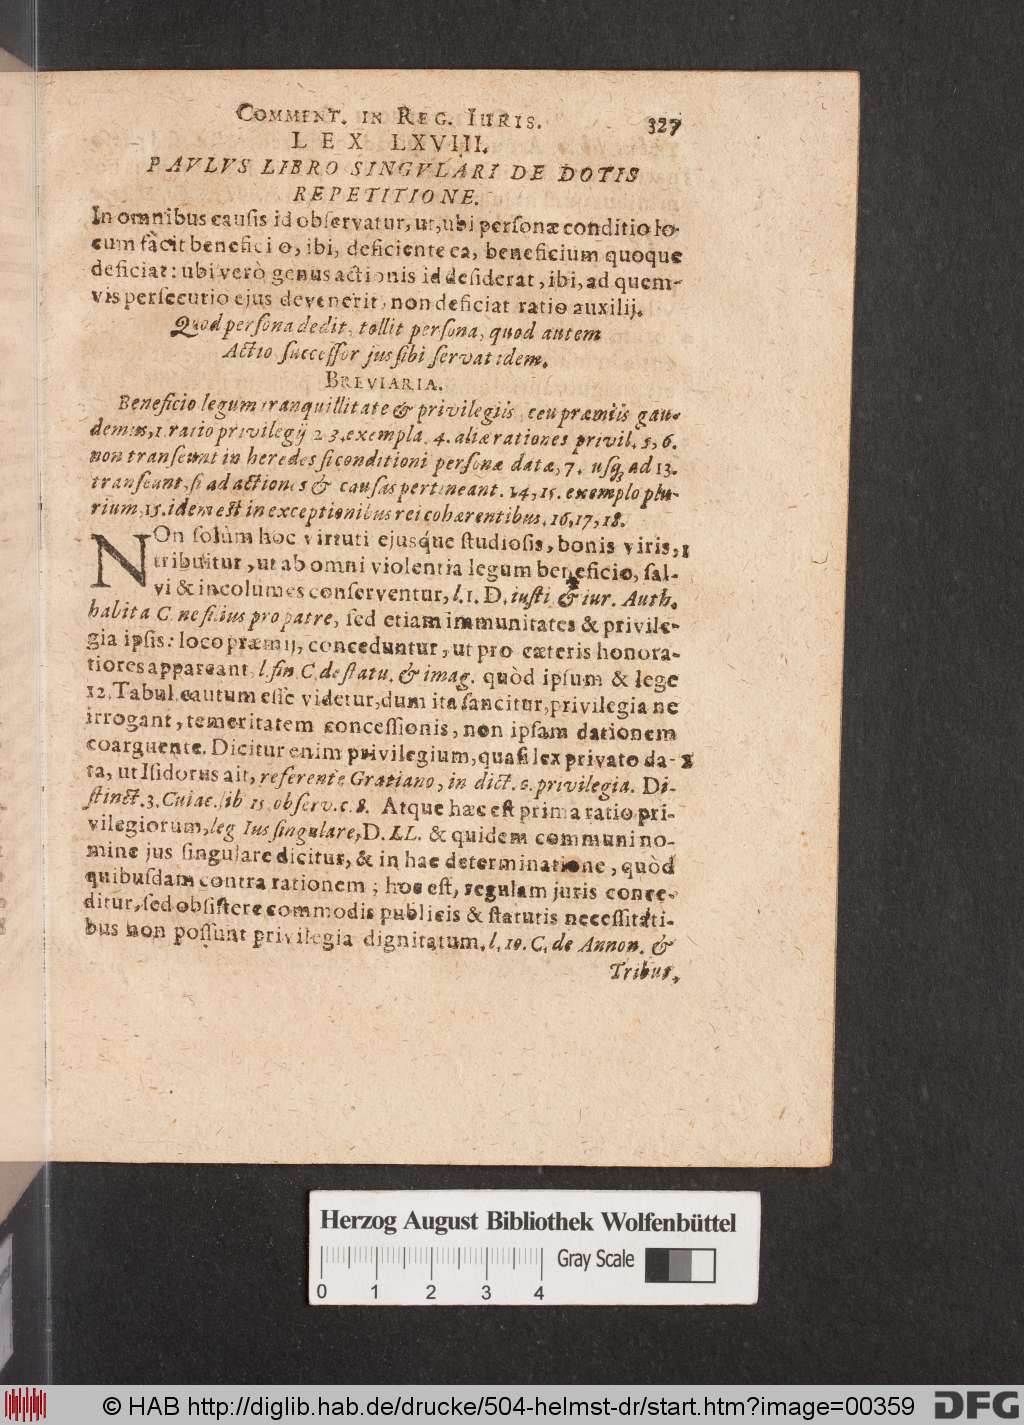 COMMENT. IN REG. IURIS. 327
LEX LXVIII.
PAVLVS LIBRO SINGVLARI DE DOTIS
REPETITIONE.
In omnibus causis id observatur, ut, ubi personæ conditio lo-
cum fàcit beneficio, ibi, deficiente ea, beneficium quoque
deficiat: ubi verò genus actionis id desiderat, ibi, ad quem-
vis persecutio ejus devenerit, non deficiat ratio auxilij.
Quod persona dedit, tollit persona, quod autem
Actio successor jus sibi servat idem.
BREVIARIA.
Beneficio legum tranquillitate & privilegiis ceu præmiis gau-
demus, 1. ratio privilegij 2. 3. exempla. 4. aliæ rationes privil. 5, 6.
non transeunt in heredes si conditioni personæ datæ, 7. usq; ad 13.
transeant, si ad actiones & causas pertineant. 14, 15. exemplo plu-
rium, 15. idem est in exceptionibus rei cohærentibus. 16, 17, 18.
NOn solùm hoc virtuti ejusque studiosis, bonis viris, 1
tribuitur, ut ab omni violentia legum beneficio, sal-
vi & incolumes conserventur, l. 1. D. iusti & iur. Auth.
habita C. ne filius pro patre, sed etiam immunitates & privile-
gia ipsis: loco præmij, conceduntur, ut pro cæteris honora-
tiores appareant, l. fin C. de statu. & imag. quòd ipsum & lege
12. Tabul. cautum esse videtur, dum ita sancitur, privilegia ne
irrogant, temeritatem concessionis, non ipsam dationem
coarguente. Dicitur enim privilegium, quasi lex privato da- 2
ta, ut Isidorus ait, referente Gratiano, in dict. c. privilegia. Di-
stinct. 3. Cuiac. lib 15. observ. c. 8. Atque hæc est prima ratio pri-
vilegiorum, leg Ius singulare, D. LL. & quidem communi no-
mine jus singulare dicitur, & in hac determinatione, quòd
quibusdam contra rationem; hoc est, regulam juris conce-
ditur, sed obsistere commodis publicis & statutis necessitati-
bus non possunt privilegia dignitatum, l. 10. C. de Annon. &
Tribut.
Herzog August Bibliothek Wolfenbüttel
Gray Scale
0 1 2 3 4
© HAB http://diglib.hab.de/drucke/504-helmst-dr/start.htm?image=00359
DFG